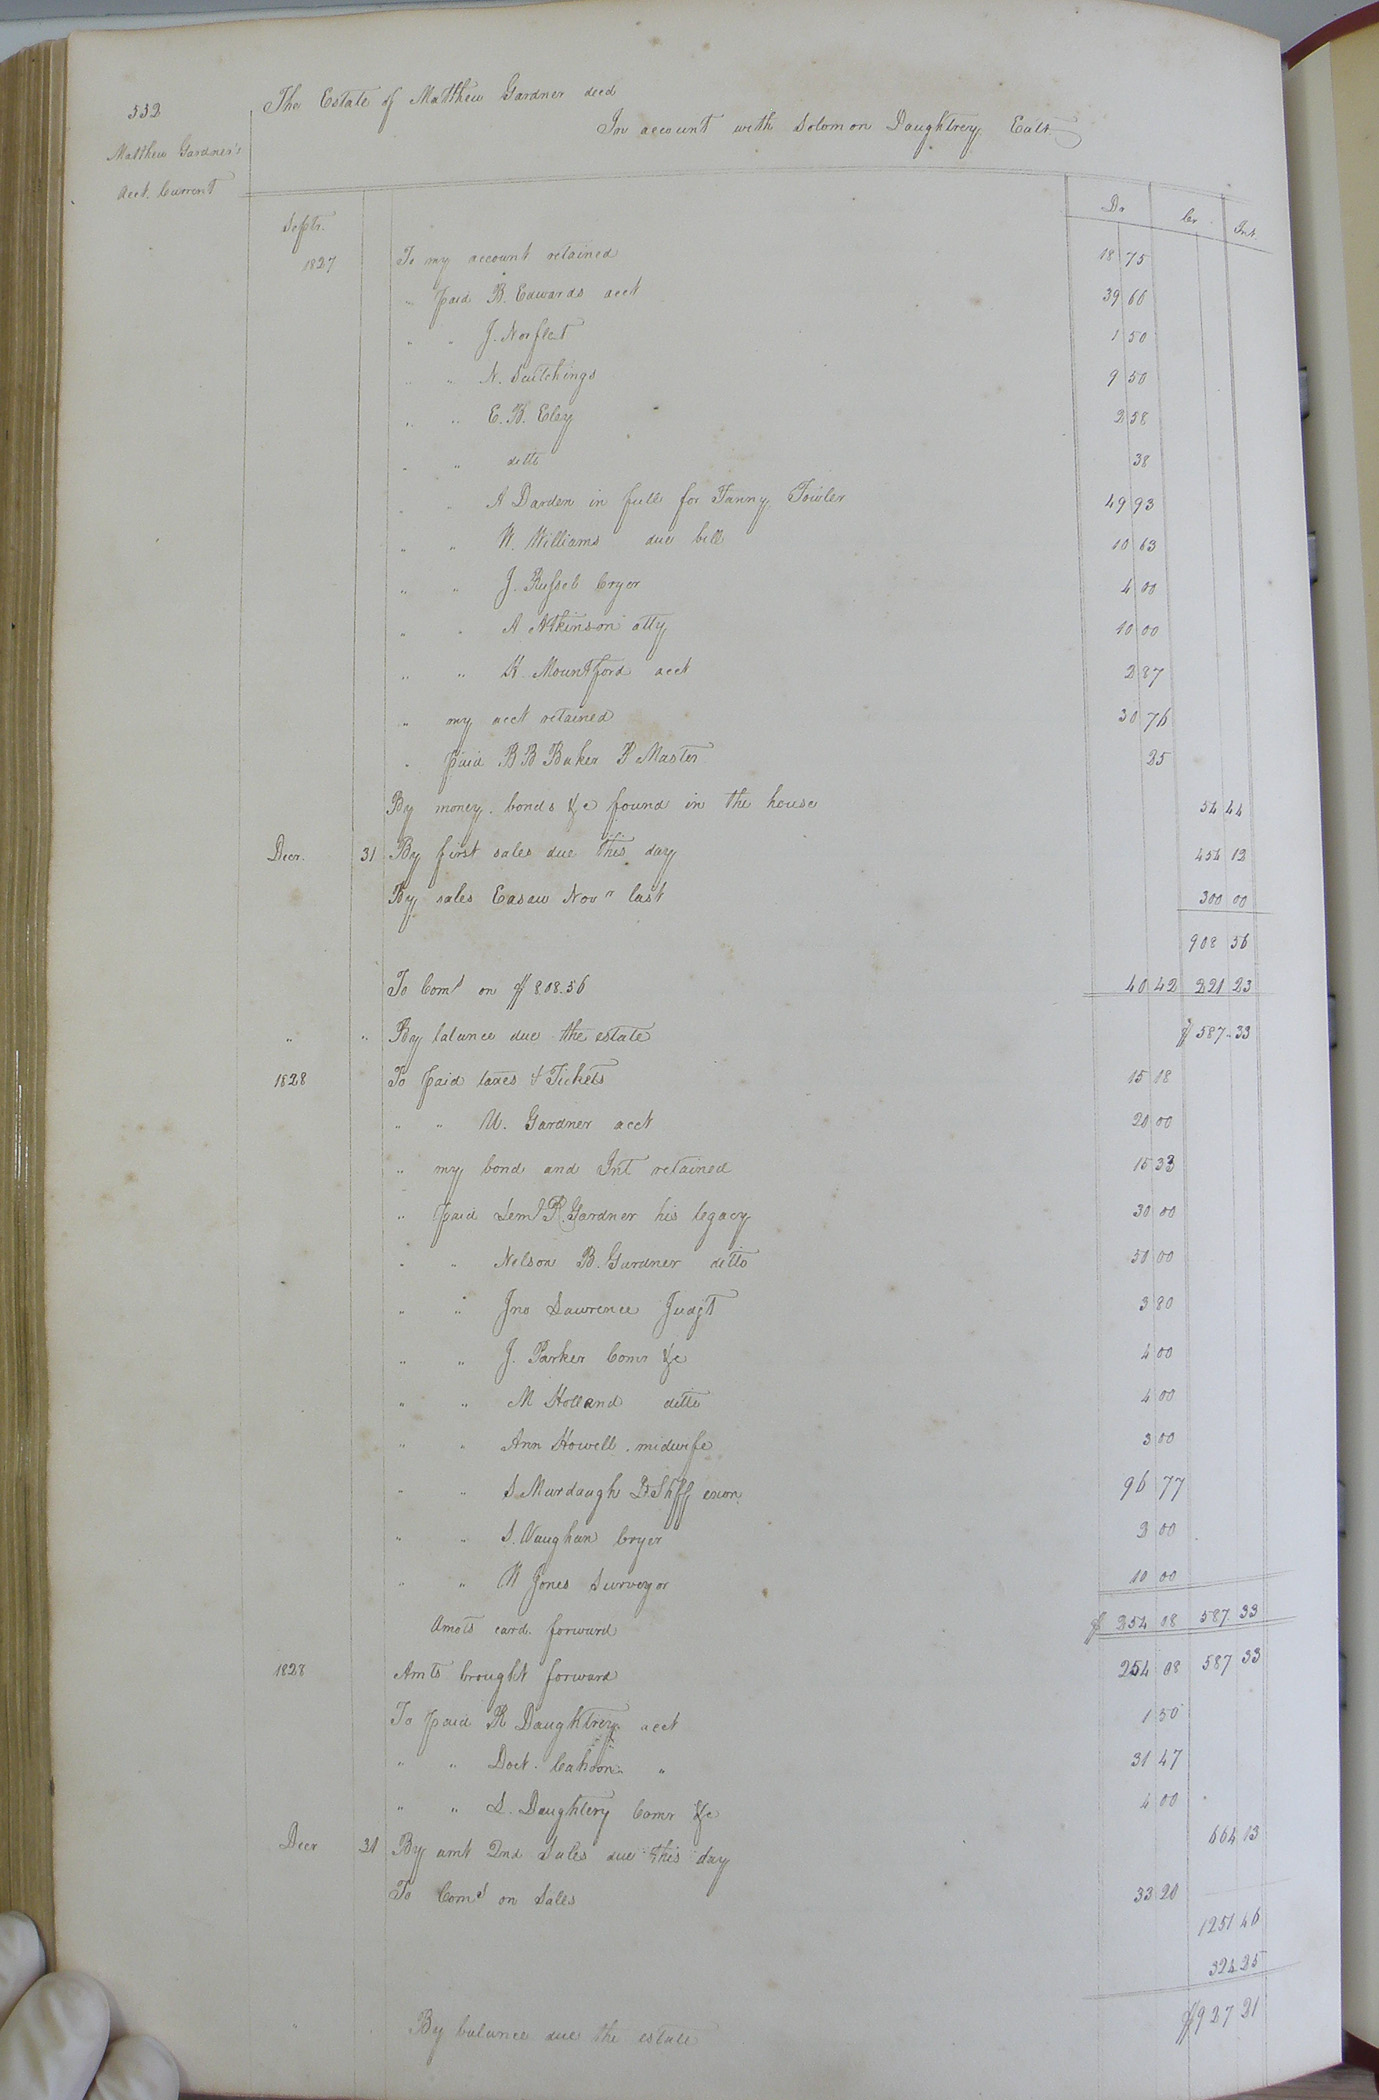 532
Matthew Gardner's
Acct. Current
The Estate of Matthew Gardner decd
In account with Solomon Daughtrey Exctr
Dr Cr Int.
Septr.
1827 To my account retained 18 75
" paid B. Edwards acct 39 60
" " J. Norflet 1 50
" " N. Scutchings 9 50
" " E. B. Eley 2 58
" " ditto 38
" " A Darden in full for Fanny Fowler 49 93
" " W. Williams due bill 10 63
" " J. Russel Cryer 4 00
" " A Atkinson atty 10 00
" " H. Mountford acct 2 87
" my acct retained 30 76
" paid B B Baker P Master 25
By money. bonds &c found in the house 54 44
Decr. 31 By first sales due this day 454 12
By sales Easaw Novr last 300 00
908 56
To Coms on $808.56 40 42 221 23
" " By balance due the estate $587.33
1828 To paid taxes & Tickets 15 18
" " U. Gardner acct 20 00
" my bond and Int retained 15 33
" paid Leml R. Gardner his legacy 30 00
" " Nelson B. Gardner ditto 50 00
" " Jno Lawrence Judgt 3 80
" " J. Parker Comr &c 4 00
" " M Holland ditto 4 00
" " Ann Howell. midwife 3 00
" " S Murdaugh D Shff exon 96 77
" " S. Vaughan Cryer 2 00
" " W Jones Surveyor 10 00
Amots card. forward $254 08 587.33
1828 Amts brought forward 254 08 587 33
To paid R Daughtrey acct 1 50
" " Doct. Cahoon " 31 47
" " S. Daughtery Comr &c 4 00
Decr 31 By amt 2nd Sales due this day 664 13
To Coms on Sales 33 20
1251 46
324 25
By balance due the estate $927 21